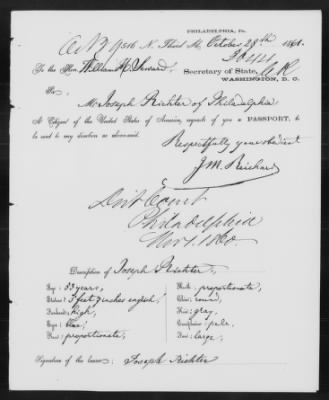 PHILADELPHIA, Pa.
516 N. Third St, October 29th 186
To the Hon. William H. Seward,
Secretary of State,
WASHINGTON, D. C.
Sir
Mr. Joseph Richter of Philadelphia
A Citizen of the United States of America, requests of you a PASSPORT, to
be sent to my direction as above said.
Respectfully your obedient
J. M. Reichard
Philadelphia
Nov 1. 1860
Description of Joseph Richter,
Age: 53 years,
Stature: 5 feet 7 inches english,
Forehead: high,
Eyes: blue,
Nose: proportionate,
Mouth: proportionate,
Chin: round,
Hair: gray,
Complexion: pale,
Face: large,
Signature of the bearer: Joseph Richter